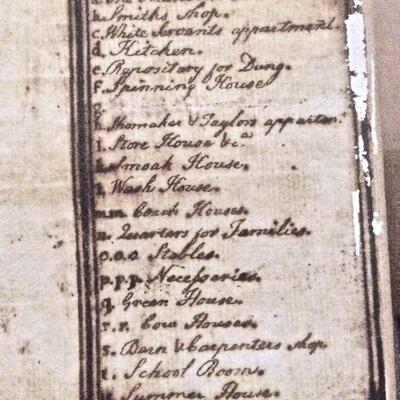 b. Smiths Shop.
c. White Servants appartment.
d. Kitchen.
e. Repository for Dung.
f. Spinning House
g.
h. Shomaker & Taylors apparten.t
i. Store House &c.a
k. Smoak House.
l. Wash House.
m.m Coach Houses.
n. Quarters for Families.
o.o.o Stables.
p.p.p. Necessaries.
q. Green House.
r.r. Cow Houses.
s. Barn & Carpenters Shop
t. School Room.
u. Summer House.